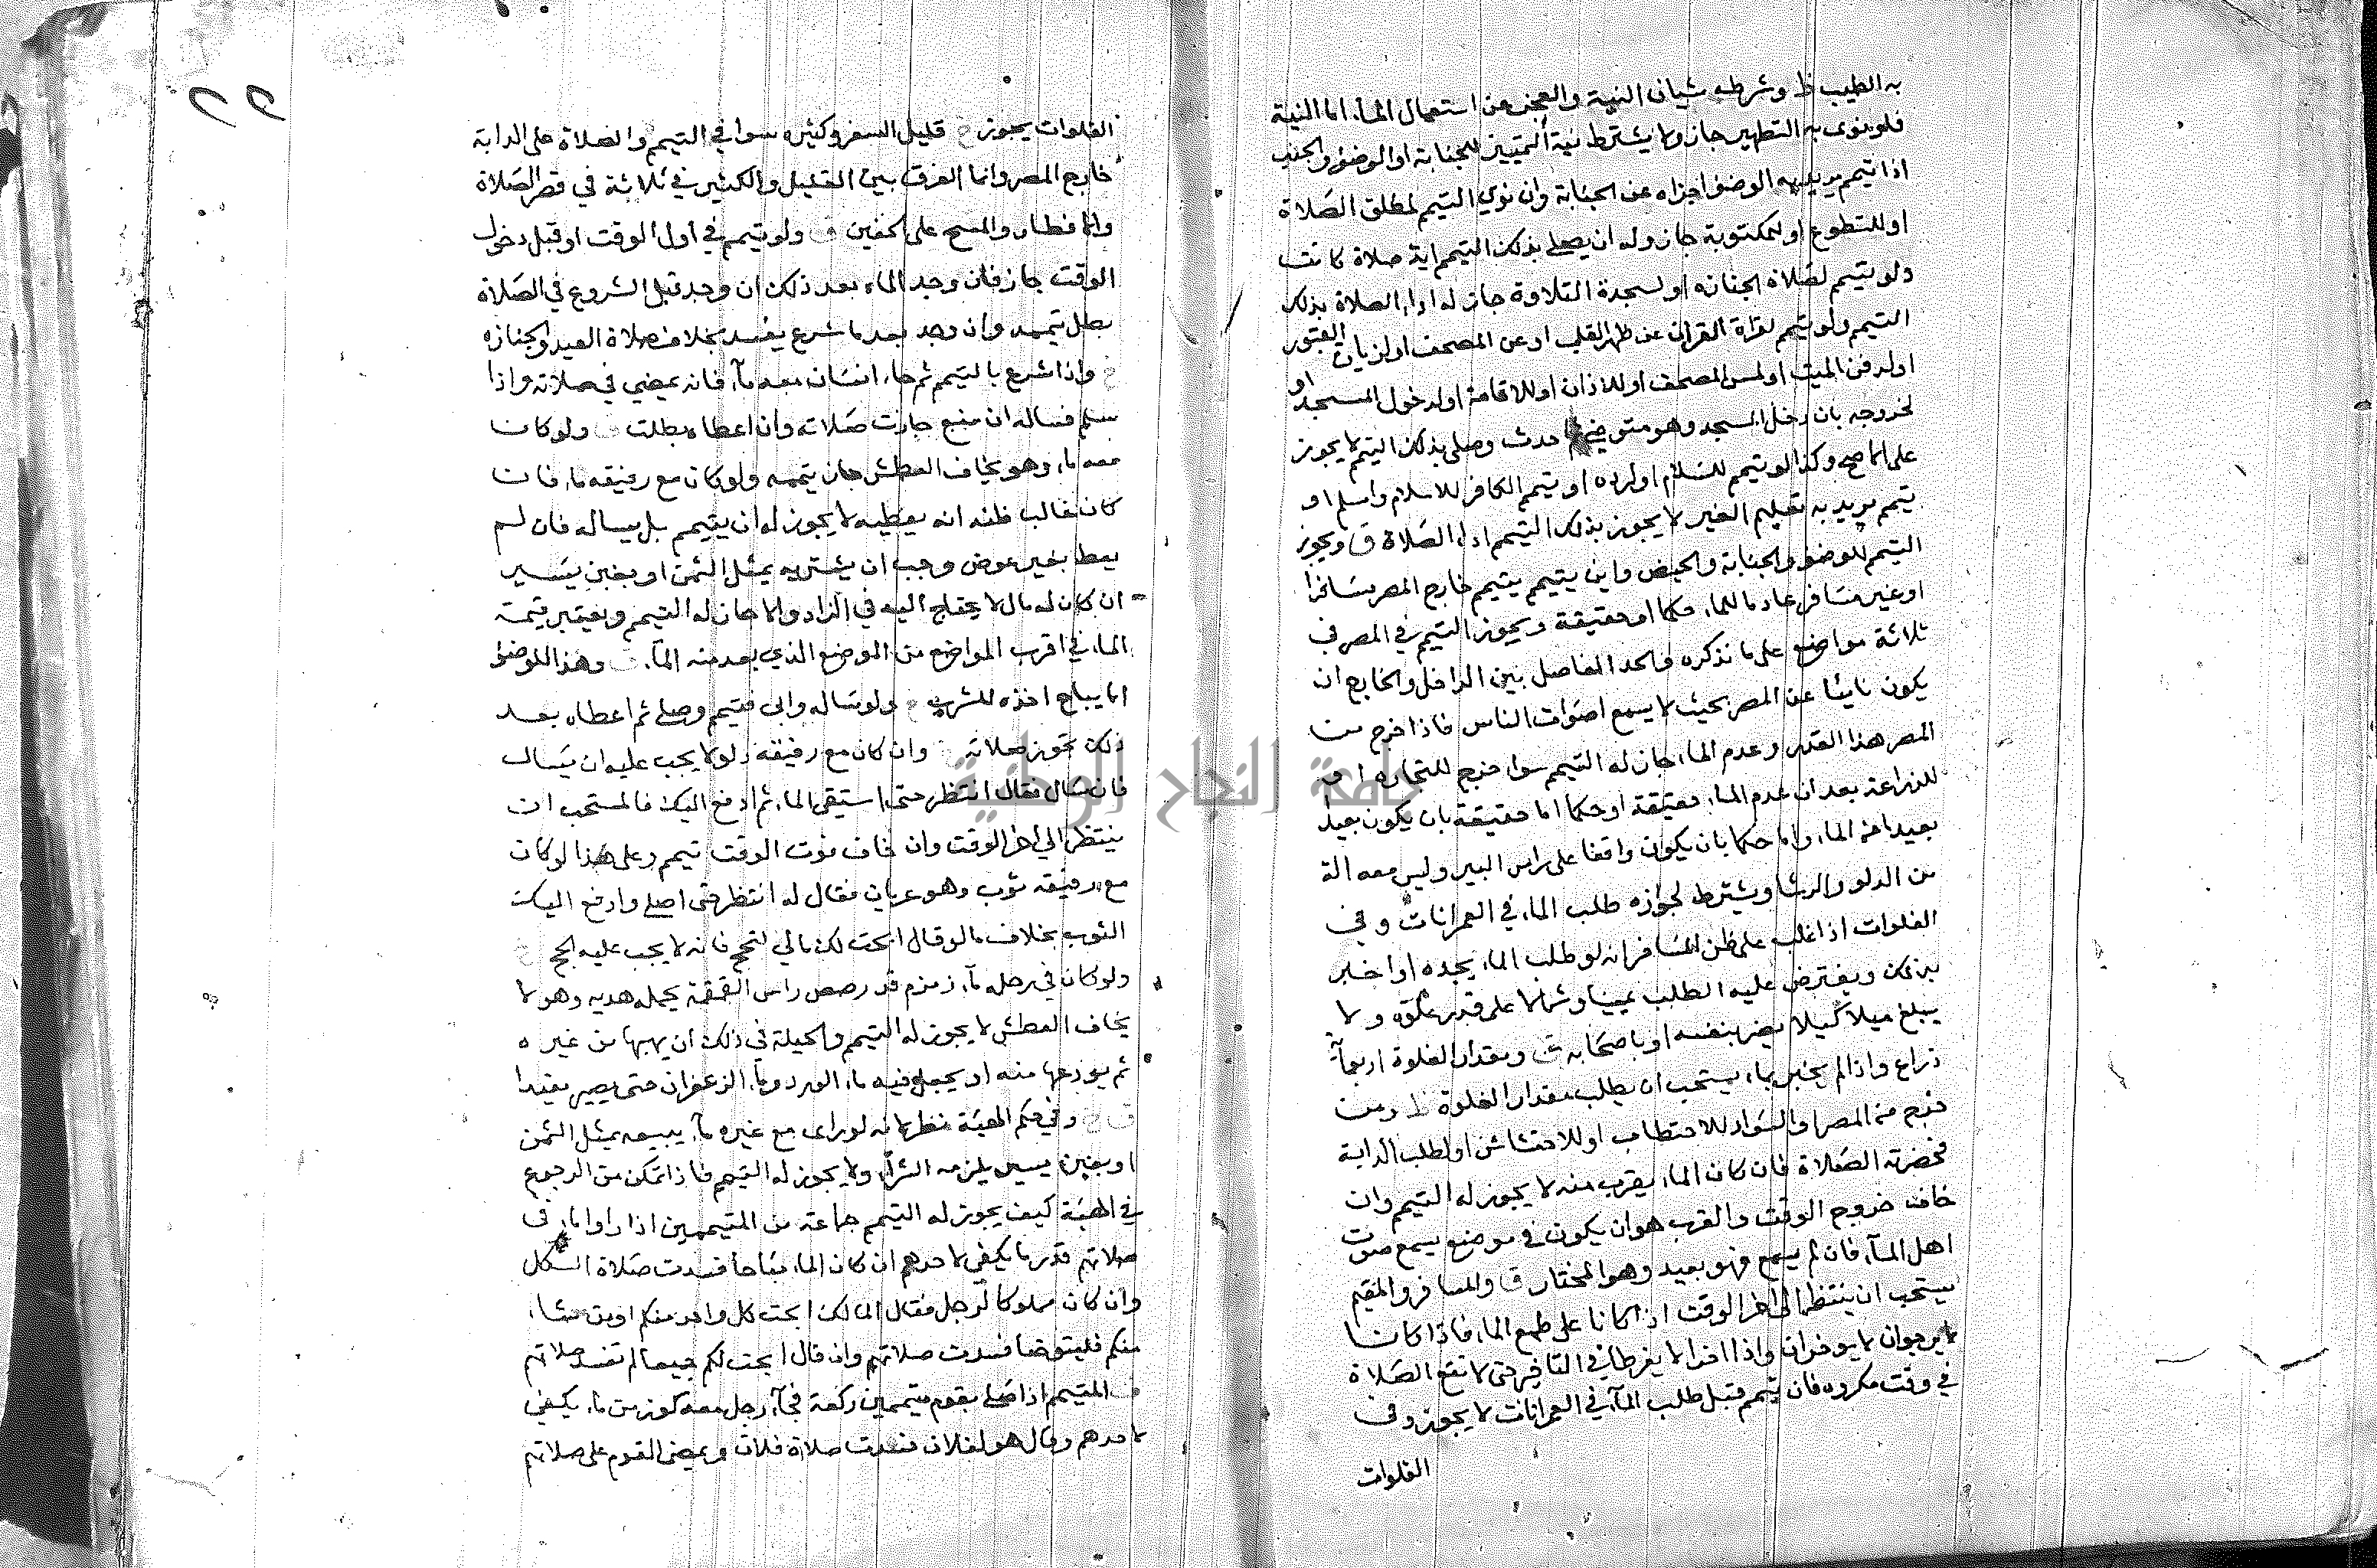 به الطيب ظ وشرطه شيان النية والعجز عن استعمال الماء اما النية
فلو نوى به التطهير جاز ولا يشترط نية التمييز للجنابة او الوضو والجنب
اذا تيمم يريد به الوضو اجزاه عن الجنابة وان نوي التيمم لمطلق الصلاة
او للتطوع او للمكتوبة جاز وله ان يصلي بذلك التيمم اية صلاة كانت
ولو تيمم لصلاة الجنازه او لسجدة التلاوة جاز له اداء الصلاة بذلك
التيمم ولو تيمم لقراة القران عن ظهر القلب او عن المصحف او لزيات القبور
او لدفن الميت او لمس المصحف او للاذان او للاقامة او لدخول المسجد او
لخروجه بان دخل المسجد وهو متوضي ثم احدث وصلى بذلك التيمم لا يجوز
على الاصح وكذا لو تيمم للسلام او لرده او تيمم الكافر للاسلام واسلم او
تيمم يريد به تعليم الغير لا يجوز بذلك التيمم اداء الصلاة ق ويجوز
التيمم للوضو والجنابة والحيض واين يتيمم يتيمم خارج المصر مسافرا
او غير مسافر عادما للماء حكما او حقيقة ويجوز التيمم في المصر في
ثلاثة مواضع على ما نذكره والحد الفاصل بين الداخل والخارج ان
يكون نائيا عن المصر بحيث لا يسمع اصوات الناس فاذا خرج من
المصر هذا القدر وعدم الماء جاز له التيمم سوا خرج للتجاره او
للزراعة بعد ان عدم الماء حقيقة او حكما اما حقيقة بان يكون بعيدا
بعيدا من الماء واما حكما بان يكون واقفا على راس البير وليس معه الة
من الدلو والرشا ويشترط لجوازه طلب الماء في العمرانات وفي
الفلوات اذا غلب على ظن المسافر انه لو طلب الماء يجده او اخبر
بذلك ويفترض عليه الطلب يمينا وشمالا على قدر غلوه ولا
يبلغ ميلا كيلا يضر بنفسه او باصحابه ق ومقدار الغلوة اربعمآئة
ذراع واذا لم يخبر بماء يستحب ان يطلب مقدار الغلوة ظ ومن
خرج من المصر او السواد للاحتطاب او للاحتشاش او لطلب الدابة
فحضرته الصلاة فان كان الماء بقرب منه لا يجوز له التيمم وان
خاف خروج الوقت والقرب هو ان يكون في موضع يسمع صوت
اهل الماء فان لم يسمع فهو بعيد وهو المختار ق والمسافر والمقيم
يستحب ان ينتظرا الى اخر الوقت اذا كانا على طمع الماء فاذا كانا
لا يرجوان لا يوخران واذا اخرا لا يفرطا في التاخير حتى لا تقع الصلاة
في وقت مكروه فان تيمم قبل طلب الماء في العمرانات لا يجوز وفي
الفلوات
الفلوات يجوز خ قليل السفر وكثيره سوا في التيمم والصلاة على الدابة
خارج المصر وانما الفرق بين القليل والكثير في ثلاثة في قصر الصلاة
والافطار والمسح على الخفين ق ولو تيمم في اول الوقت او قبل دخول
الوقت جاز فان وجد الماء بعد ذلك ان وجد قبل الشروع في الصلاة
بطل تيممه وان وجد بعد ما شرع يفسد بخلاف صلاة العيد والجنازه
خ واذا شرع بالتيمم ثم جاء انسان معه ماء فانه يمضي في صلاته واذا
سلم فساله ان منع جازت صلاته وان اعطاه بطلت ق ولو كان
معه ماء وهو يخاف العطش جاز تيممه ولو كان مع رفيقه ماء فان
كان غالب ظنه انه يعطيه لا يجوز له ان يتيمم بل يساله فان لم
يعط بغير عوض وجب ان يشتريه بمثل الثمن او بغبن يسير
ان كان له مال لا يحتاج اليه في الزاد والا جاز له التيمم ويعتبر قيمة
الماء في اقرب المواضع من الموضع الذي بعد منه الماء ق وهذا للوضو
اما يباح اخذه للشرب خ ولو ساله وابى فتيمم وصلى ثم اعطاه بعد
ذلك تجوز صلاته وان كان مع رفيقه دلو لا يجب عليه ان يسال
فان سال فقال انتظر حتى استقي الماء ثم ادفع اليك فالمستحب ان
ينتظر الي اخر الوقت وان خاف فوت الوقت تيمم وعلى هذا لو كان
مع رفيقه ثوب وهو عريان فقال له انتظر حتى اصلي وادفع اليك
الثوب بخلاف ما لو قال ابحت لك مالي لتحج فانه لا يجب عليه الحج خ
ولو كان في رحله ماء زمزم قد رصص راس القمقمة يحمله هديه وهو لا
يخاف العطش لا يجوز له التيمم والحيلة في ذلك ان يهبها من غيره
ثم يودعها منه او يجعل فيه ماء الورد وماء الزعفران حتى يصير مقيدا
ق خ وفي حكم الهبة نظر لانه لو راى مع غيره ماء يبيعه بمثل الثمن
او بغبن يسير يلزمه الشراء ولا يجوز له التيمم فاذا تمكن من الرجوع
في الهبة كيف يجوز له التيمم جماعة من المتيممين اذا راوا ماء في
صلاتهم قدر ما يكفي لاحدهم ان كان الماء مباحا فسدت صلاة الكل
وان كان مملوكا لرجل فقال المالك ابحت كل واحد منكم او من شاء
منكم فليتوضا فسدت صلاتهم وان قال ابحت لكم جميعا لم تفسد صلاتهم
المتيمم اذا صلى بقوم متيممين ركعة فجاء رجل معه كوز من ماء يكفي
لاحدهم وقال هو لفلان فسدت صلاة فلان ويمضى القوم على صلاتهم
جامعة النجاح الوطنية